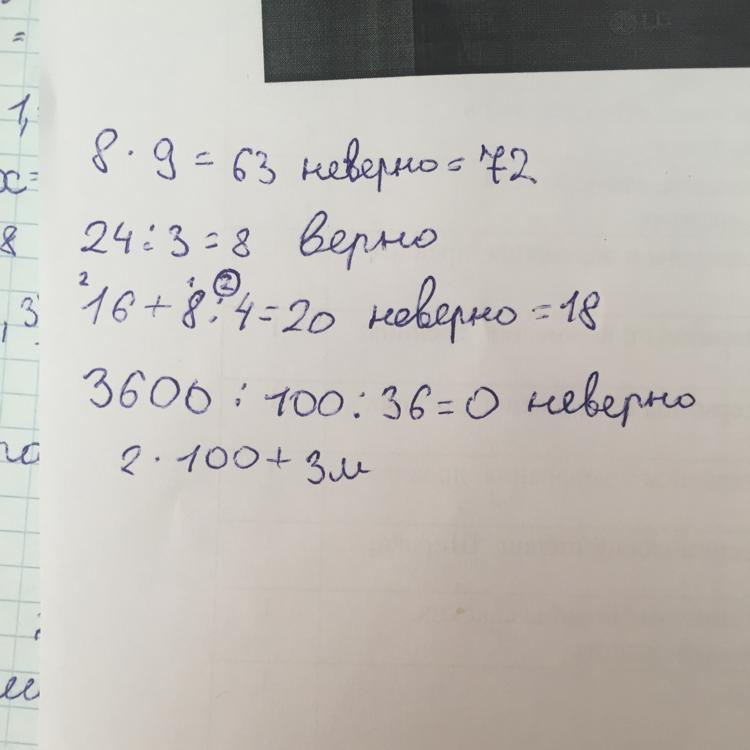 8 · 9 = 63 неверно = 72
24 : 3 = 8 верно
2 1 2
16 + 8 : 4 = 20 неверно = 18
3600 : 100 : 36 = 0 неверно
2 · 100 + 3м
=
1,
x=
8
, 3